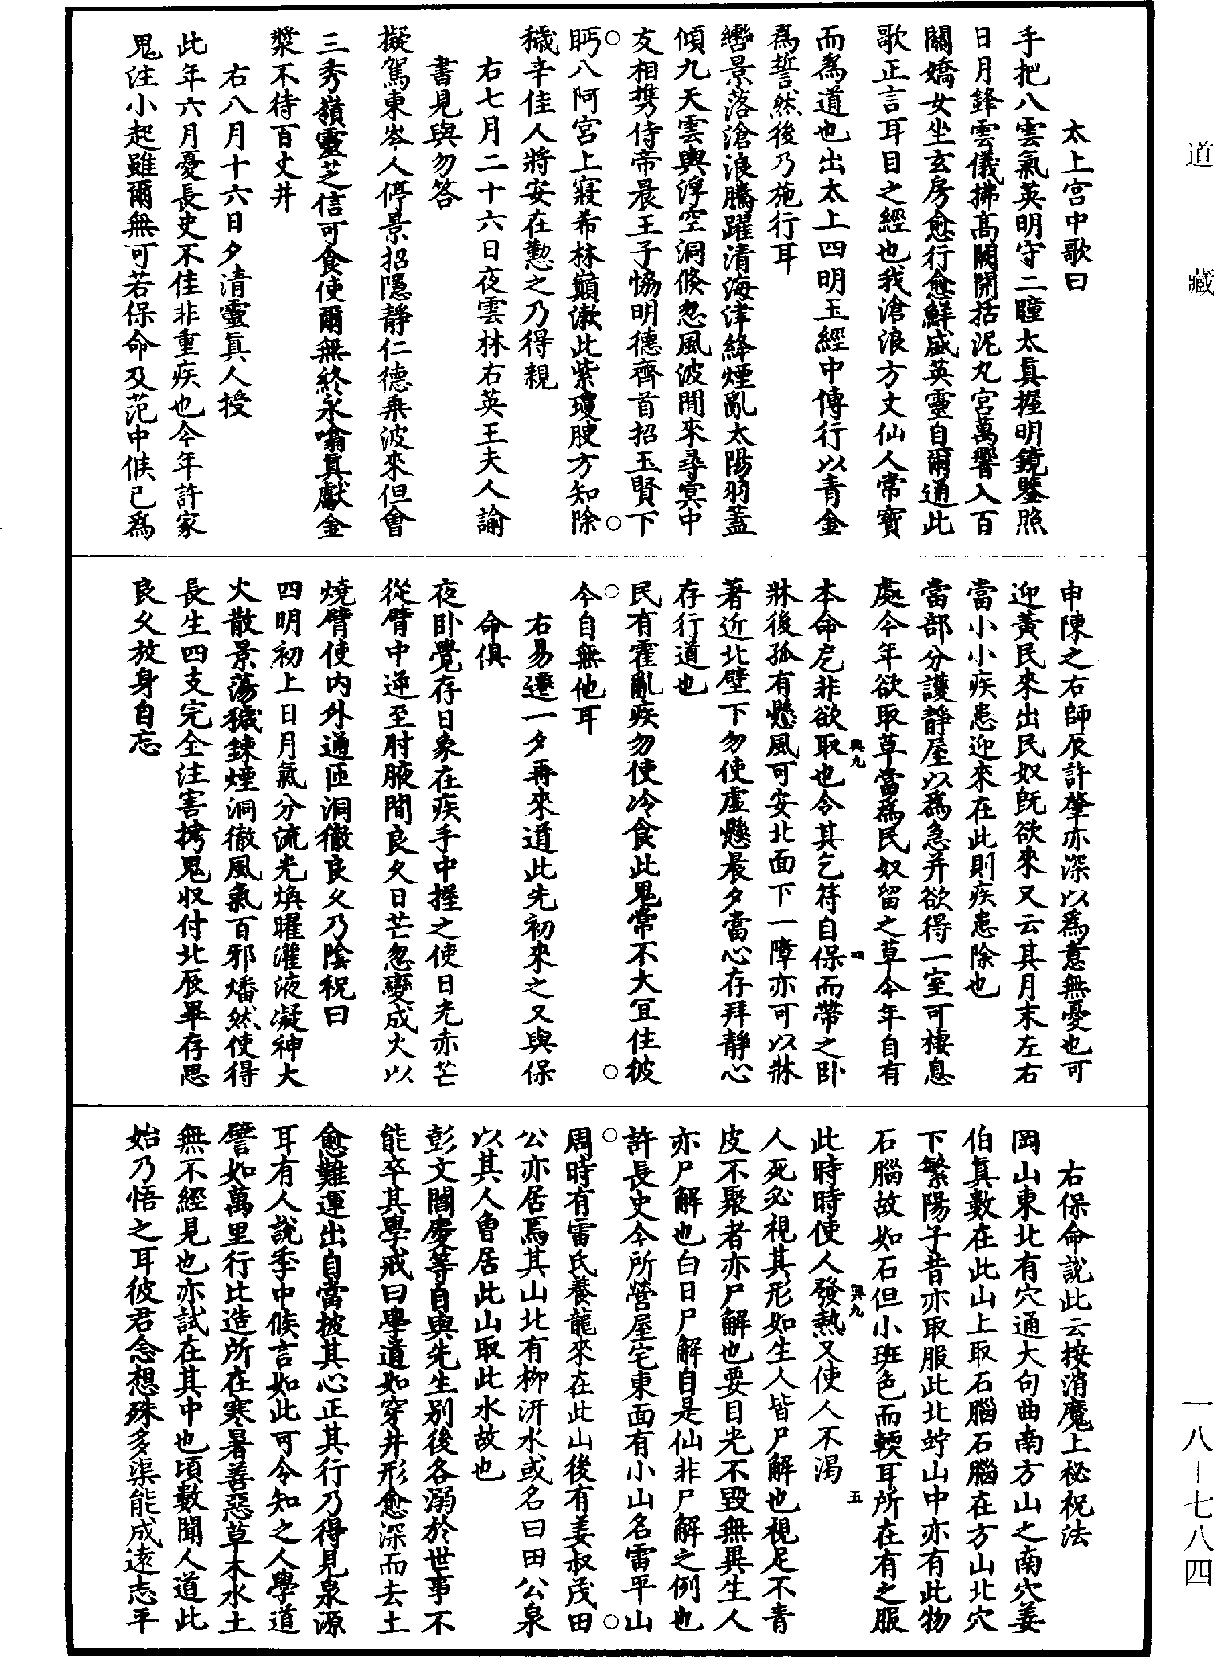 道藏
太上宫中歌曰
手把八雲氣英明守二瞳太真握明鏡鑒照
日月鋒雲儀拂高闕開括泥丸宫萬響入百
關嬌女坐玄房愈行愈鮮盛英靈自爾通此
歌正言耳目之經也我滄浪方丈仙人常寶
而爲道也出太上四明玉經中傳行以青金
爲誓然後乃施行耳
轡景落滄浪騰躍清海津絳煙亂太陽羽蓋
傾九天雲輿浮空洞倏忽風波間來尋冥中
友相携侍帝晨王子恊明德齊首招玉賢下
眄八阿宫上寢希林巔漱此紫瓊腴方知除
穢辛佳人將安在懃之乃得親
右七月二十六日夜雲林右英王夫人諭
書見與勿答
擬駕東岑人停景招隱靜仁德乘波來但會
三秀嶺靈芝信可食使爾無終永嗡真獻金
漿不待百丈井
右八月十六日夕清靈真人授
此年六月憂長史不佳非重疾也今年許家
鬼注小起雖爾無可若保命及范中候已爲
申陳之右師晨許肇亦深以爲意無憂也可
迎黄民來出民奴旣欲來又云其月末左右
當小小疾患迎來在此則疾患除也
當部分護靜屋以爲急并欲得一室可棲息
處今年欲取草當爲民奴留之草今年自有
本命戹非欲取也令其乞符自保而帶之卧
牀後孤有懸風可安北面下一障亦可以牀
著近北壁下勿使虛懸晨夕當心存拜靜心
存行道也
民有霍亂疾勿使冷食此鬼常不大冝住彼
今自無他耳
右易遷一夕再來道此先初來之又與保
命俱
夜卧覺存日象在疾手中握之使日光赤芒
從臂中逆至肘腋間良久日芒忽變成火以
燒臂使内外通匝洞徹良久乃陰祝曰
四明初上日月氣分流光煥曜灌液凝神大
火散景蕩穢鍊煙洞徹風氣百邪燔然使得
長生四支完全注害拷鬼收付北辰畢存思
良久放身自忘
右保命說此云按消魔上祕祝法
岡山東北有穴通大句曲南方山之南穴姜
伯真數在此山上取石腦石腦在方山北穴
下繁陽子昔亦取服此北竚山中亦有此物
石腦故如石但小斑色而輭耳所在有之服
此時時使人發熱又使人不渴
人死必視其形如生人皆尸解也視足不青
皮不聚者亦尸解也要目光不毀無異生人
亦尸解也白日尸解自是仙非尸解之例也
許長史今所營屋宅東面有小山名雷平山
周時有雷氏養龍來在此山後有姜叔茂田
公亦居焉其山北有柳汧水或名曰田公泉
以其人曾居此山取此水故也
彭文闇慶等自與先生别後各溺於世事不
能卒其學戒曰學道如穿井形愈深而去土
愈難運出自當披其心正其行乃得見泉源
耳有人說季中候言如此可令知之人學道
譬如萬里行比造所在寒暑善惡草木水土
無不經見也亦試在其中也頃數聞人道此
始乃悟之耳彼君念想殊多渠能成遠志乎
一八－七八四